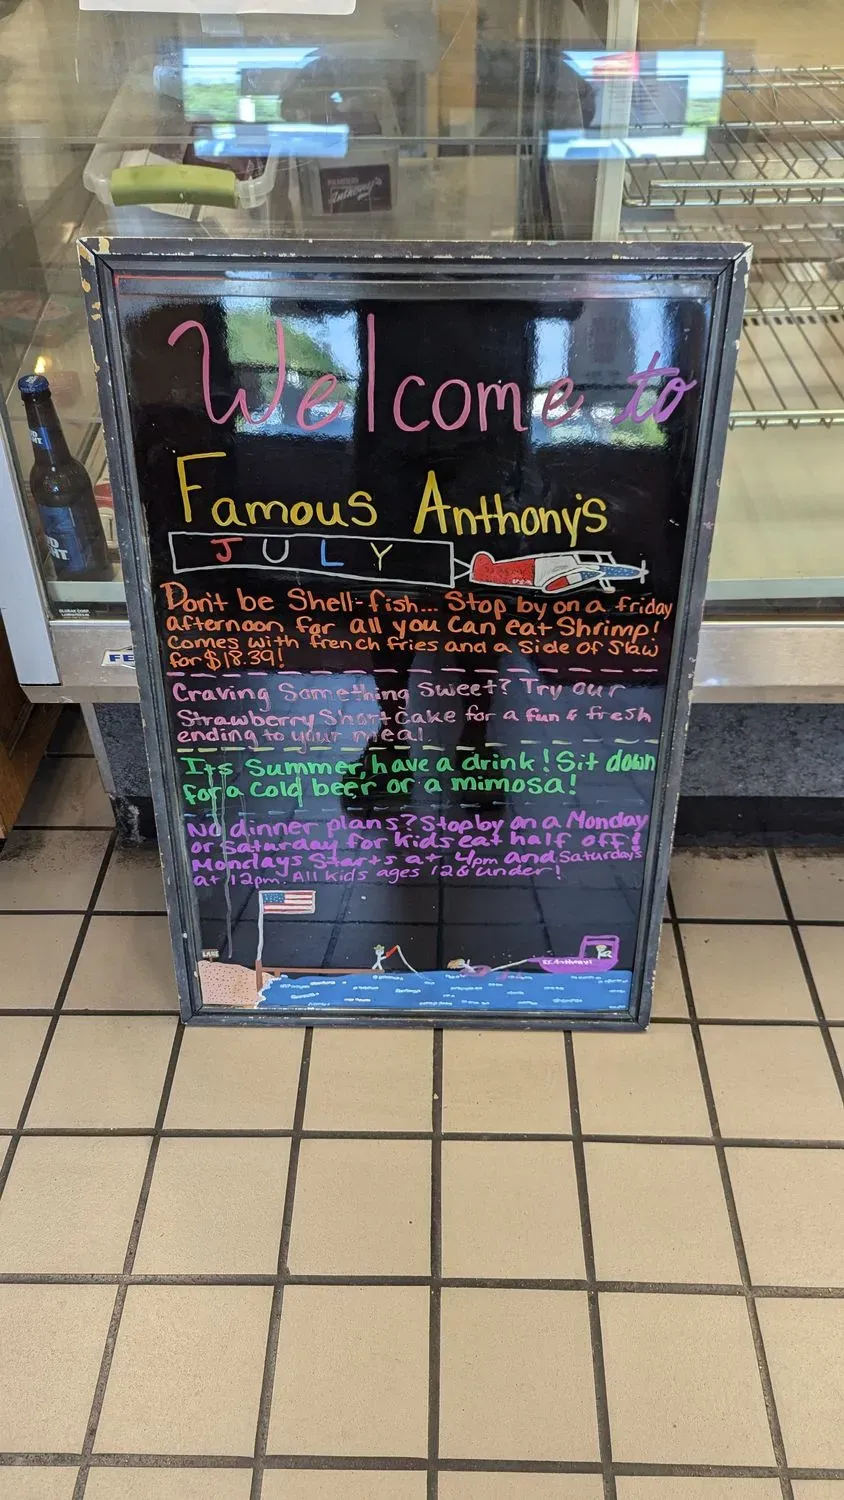 Anthony's
Welcome to
Famous Anthony's
JULY
Don't be Shell-fish... Stop by on a friday
afternoon for all you can eat Shrimp!
Comes with french fries and a side of Slaw
for $18.39!
Craving Something Sweet? Try our
Strawberry Short Cake for a fun & fresh
ending to your meal.
Its Summer, have a drink! Sit down
for a cold beer or a mimosa!
No dinner plans? Stop by on a Monday
or Saturday for kids eat half off!
Mondays Starts at 4pm and Saturdays
at 12pm. All kids ages 12 & under!
LAKE
SS. Anthony's